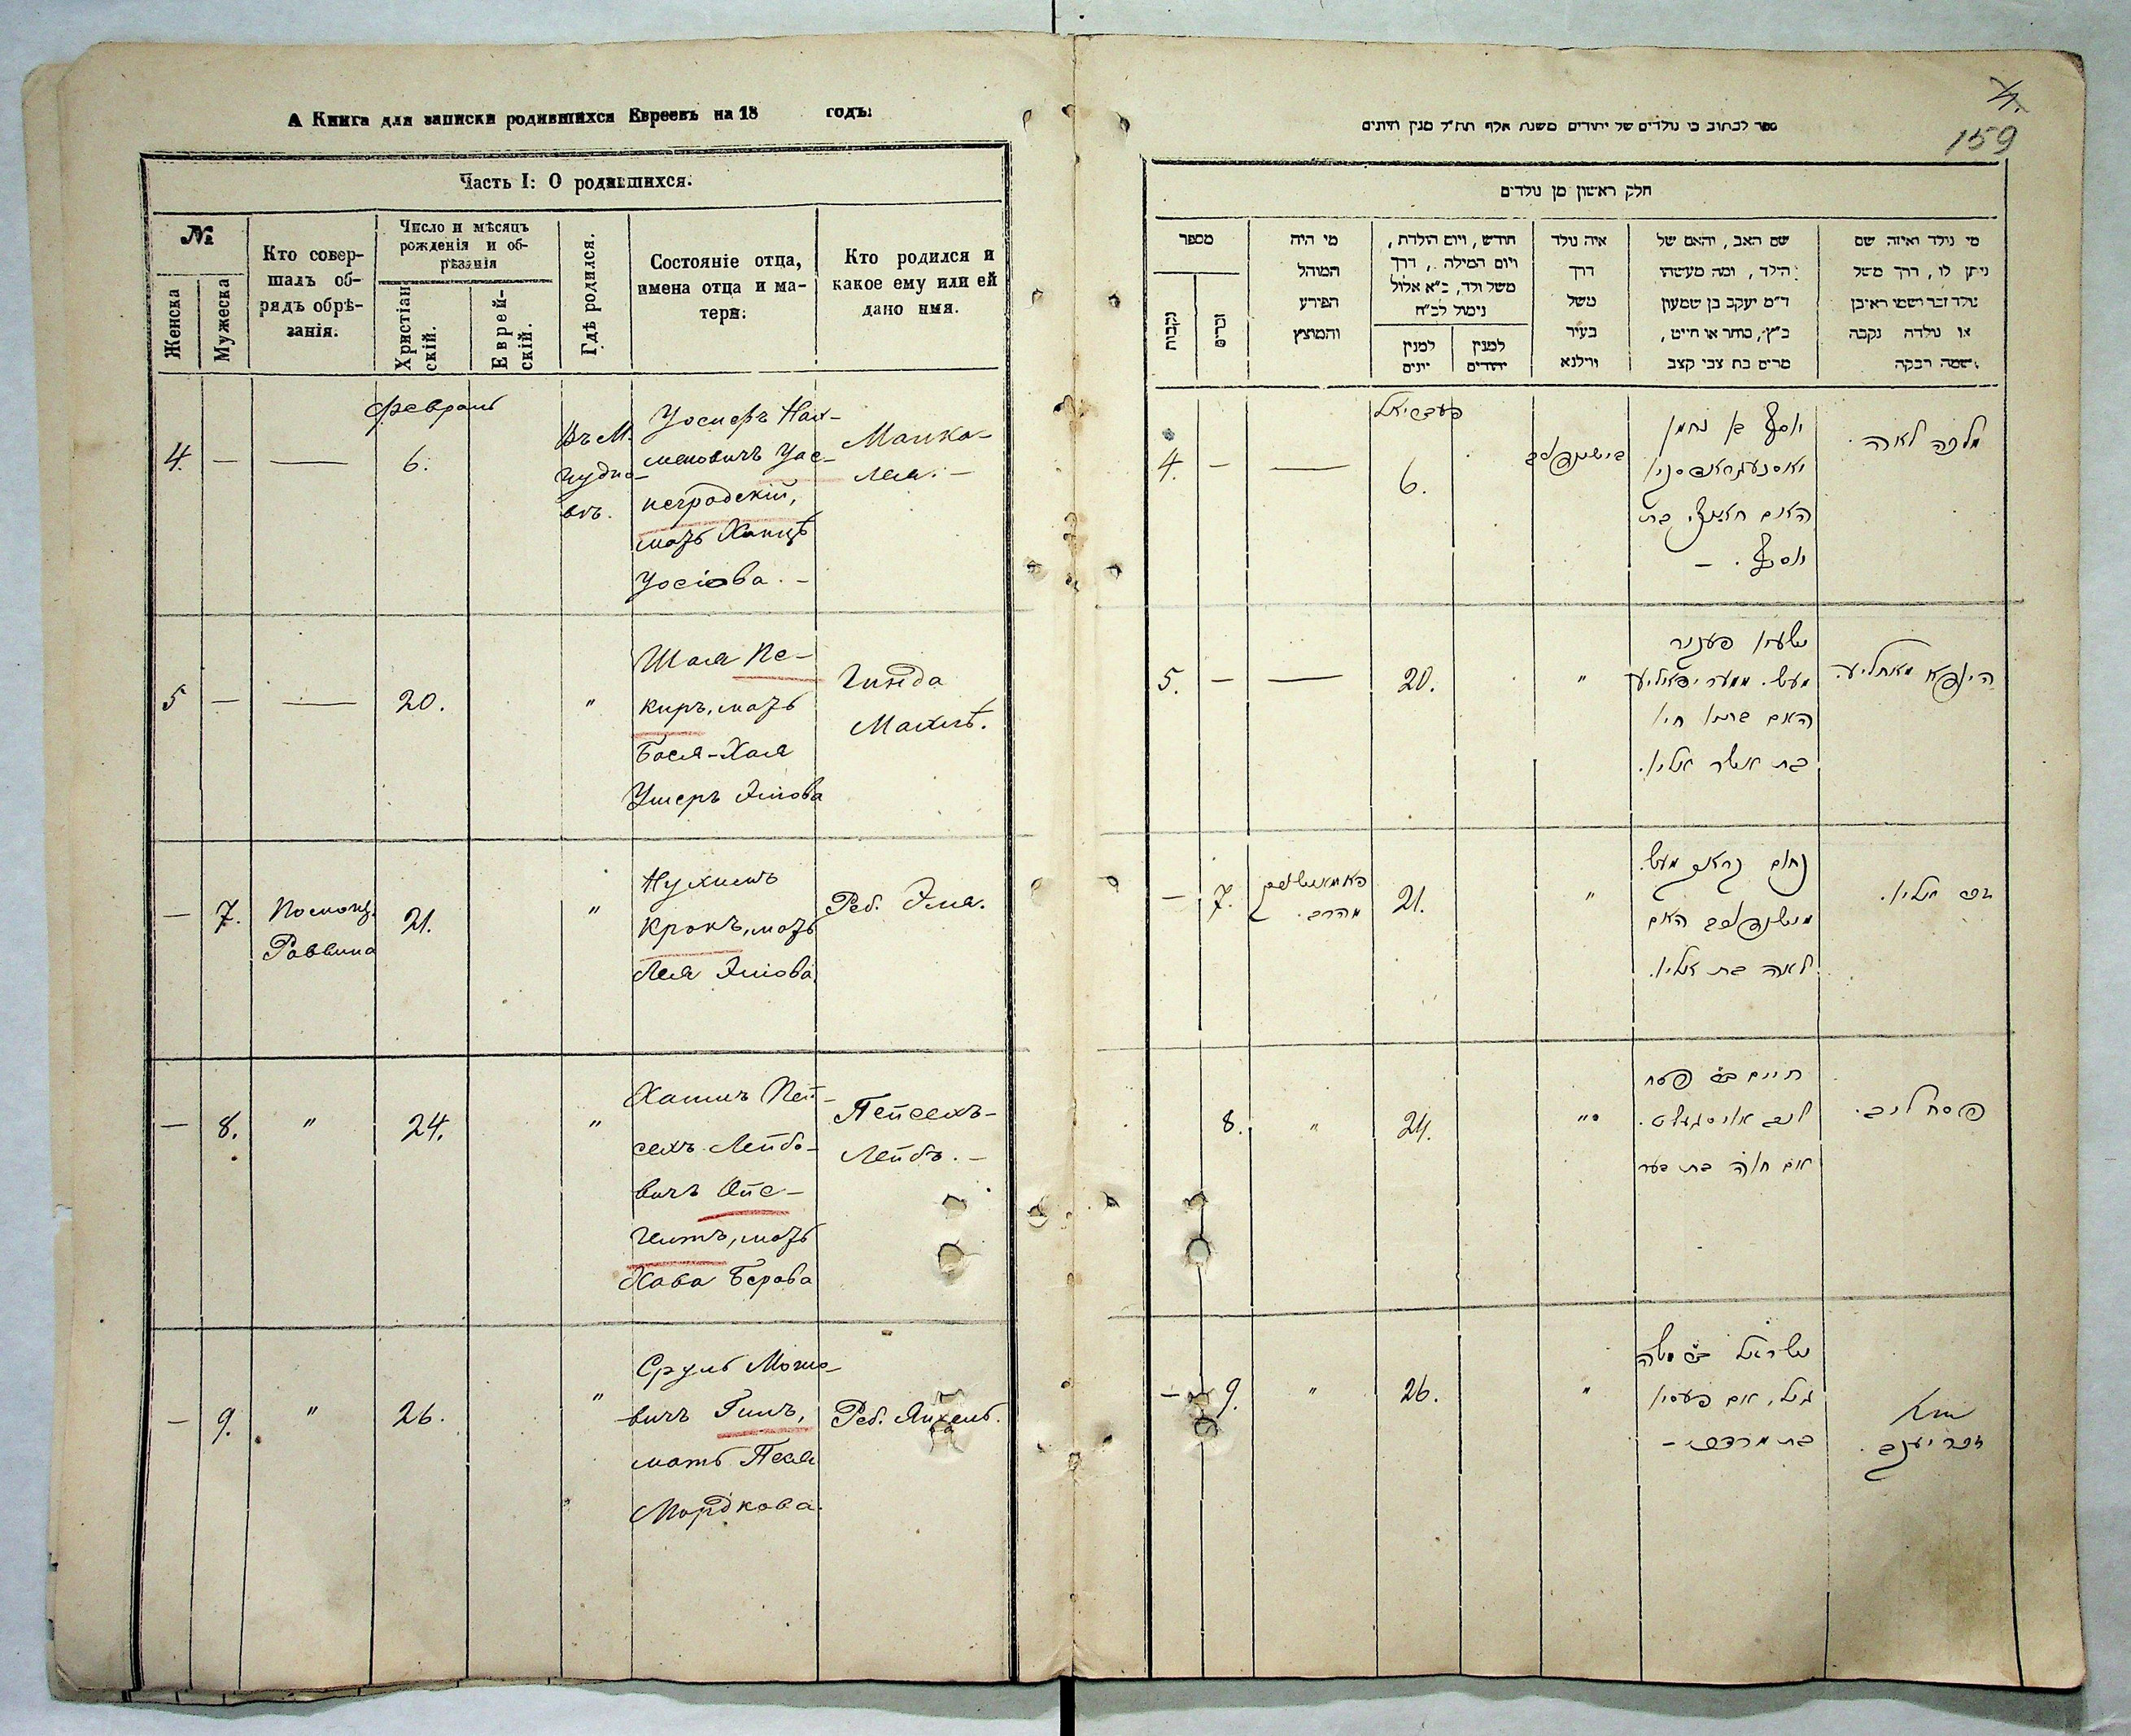 А Книга для записки родившихся Евреевъ на 18 годъ:
Часть I: О родившихся.
№
Женска
Мужеска
Кто совер-
шалъ об-
рядъ обрѣ-
занія:
Число и мѣсяцъ
рожденія и об-
рѣзанія
Христіан
скій.
Еврей-
скій.
Гдѣ родился.
Состояніе отца,
имена отца и ма-
тери:
Кто родился и
какое ему или ей
дано имя.
Февраль
4. — — 6.
Въ М.
Чудно-
въ.
Іосифъ Нах-
мановичъ Уас-
неградскій,
мать Ханцѣ
Іосіова. —
Малка-
Лея. —
5 — — 20. "
Шая Пе-
киръ, мать
Бася-Хая
Ушеръ Эліова
Гинда
Махлѣ.
— 7.
Помощ.
Раввина
21. "
Нухимъ
Крокъ, мать
Лея Эліова
Реб. Эля.
— 8. " 24. "
Хаимъ Пей-
сехъ Лейбо-
вичъ
мать
Хава Берова
Пейсехъ-
Лейбъ. —
— 9. " 26. "
Сруль Мошо-
вичъ Гилъ,
мать Песя
Мордкова.
Реб. Янкель.
159
ספר לכתוב בו נולדים של יהודים משנת אלף תת"ל מנין היונים
חלק ראשון מן נולדים
מספר
נקבות
זכרים
מי היה
המוהל
הפירע
והמוצץ
חודש, ויום הולדת,
ויום המילה, דרך
משל ולד, כ"א אלול
נימול לכ"ח
למנין
יונים
למנין
יהודים
איה נולד
דרך
משל
בעיר
ווילנא
שם האב, והאם של
הילד, ומה מעשהו
ד"מ יעקב בן שמעון
כ"ץ, סוחר או חייט,
מרים בת צבי קצב
מי נולד ואיזה שם
ניתן לו, דרך משל
נולד זכר ושמו ראובן
או נולדה נקבה
ושמה רבקה
4. — — 6.
יוסף בן נחמן
האם בת
יוסף. —
מלכה לאה.
5. — — 20. "
האם בתיו חיו
בת אשר אליו.
— 7.
21. "
נחום קראק מעש.
האם
לאה בת אליו.
זכר אליו.
8. " 24. "
חיים ב"ר פסח
ליב
אם חוה בת בער
פסח ליב.
— 9. " 26. "
ישראל ב"ר משה
גיל, אם פעסיו
בת מרדכי —
זכר יענקב.